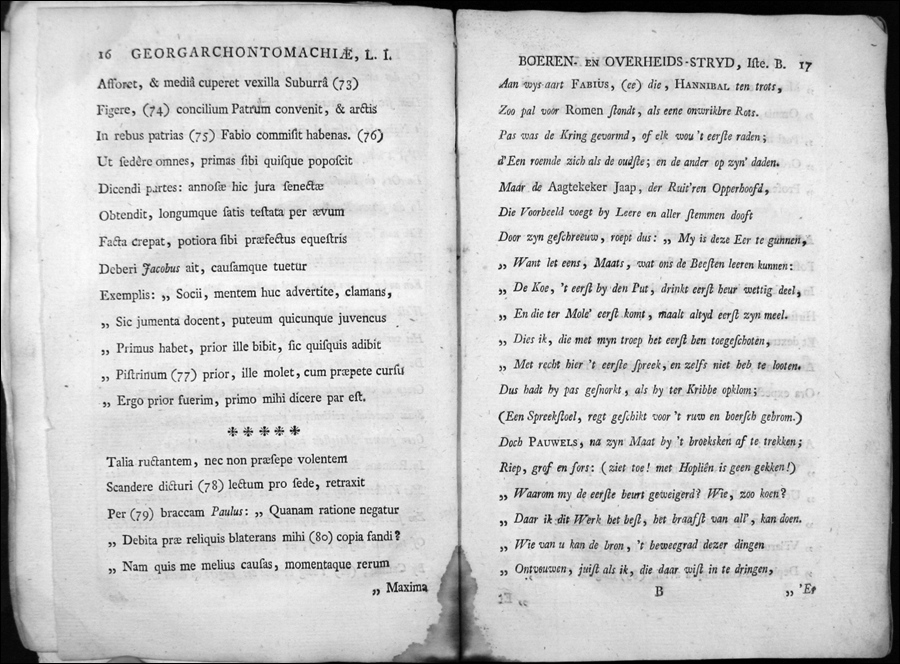 16 GEORGARCHONTOMACHIÆ, L. I.
Afforet, & mediâ cuperet vexilla Suburrâ (73)
Figere, (74) concilium Patrum convenit, & arctis
In rebus patrias (75) Fabio commiſit habenas. (76)
Ut ſedêre omnes, primas ſibi quiſque popoſcit
Dicendi partes: annoſæ hic jura ſenectæ
Obtendit, longumque ſatis teſtata per ævum
Facta crepat, potiora ſibi præfectus equeſtris
Deberi Jacobus ait, cauſamque tuetur
Exemplis: „ Socii, mentem huc advertite, clamans,
„ Sic jumenta docent, puteum quicunque juvencus
„ Primus habet, prior ille bibit, ſic quiſquis adibit
„ Piſtrinum (77) prior, ille molet, cum præpete curſu
„ Ergo prior fuerim, primo mihi dicere par eſt.
⁜ ⁜ ⁜ ⁜ ⁜
Talia ructantem, nec non præſepe volentem
Scandere dicturi (78) lectum pro ſede, retraxit
Per (79) braccam Paulus: „ Quanam ratione negatur
„ Debita præ reliquis blaterans mihi (80) copia fandi?
„ Nam quis me melius cauſas, momentaque rerum
„ Maxima
BOEREN- EN OVERHEIDS-STRYD, Iſte. B. 17
Aan wys-aart FABIUS, (ee) die, HANNIBAL ten trots,
Zoo pal voor Romen ſtondt, als eene onwrikbre Rots.
Pas was de Kring gevormd, of elk wou 't eerſte raden;
d'Een roemde zich als de oudſte; en de ander op zyn' daden.
Maar de Aagtekeker Jaap, der Ruit'ren Opperhoofd,
Die Voorbeeld voegt by Leere en aller ſtemmen dooft
Door zyn geſchreeuw, roept dus: „ My is deze Eer te gunnen,
„ Want let eens, Maats, wat ons de Beeſten leeren kunnen:
„ De Koe, 't eerſt by den Put, drinkt eerſt heur wettig deel,
„ En die ter Mole' eerſt komt, maalt altyd eerſt zyn meel.
„ Dies ik, die met myn troep het eerſt ben toegeſchoten,
„ Met recht hier 't eerſte ſpreek, en zelfs niet heb te looten.
Dus hadt hy pas geſnorkt, als hy ter Kribbe opklom;
(Een Spreekſtoel, regt geſchikt voor 't ruw en boerſch gebrom.)
Doch PAUWELS, na zyn Maat by 't broeksken af te trekken;
Riep, grof en fors: (ziet toe! met Hopliên is geen gekken!)
„ Waarom my de eerſte beurt geweigerd? Wie, zoo koen?
„ Daar ik dit Werk het beſt, het braafſt van all', kan doen.
„ Wie van u kan de bron, 't beweegrad dezer dingen
„ Ontvouwen, juiſt als ik, die daar wiſt in te dringen,
B „ 'Er